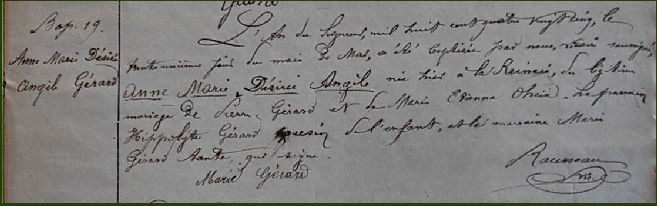 Bap. 19.
Anne Marie Désiré
Angèl Gérard
L'an du Seigneur, mil huit cent quatre vingt cinq, le
trente unième jour du mois de Mai, a été baptisée par nous, vicaire soussigné,
Anne Marie Désirée Angèle née hier à la du légitime
mariage de Pierre Gérard et de Marie Etienne Le parrain
Hippolyte Gérard cousin de l'enfant, et la marraine Marie
Gérard tante, qui signe.
Marie Gérard
Rousseau